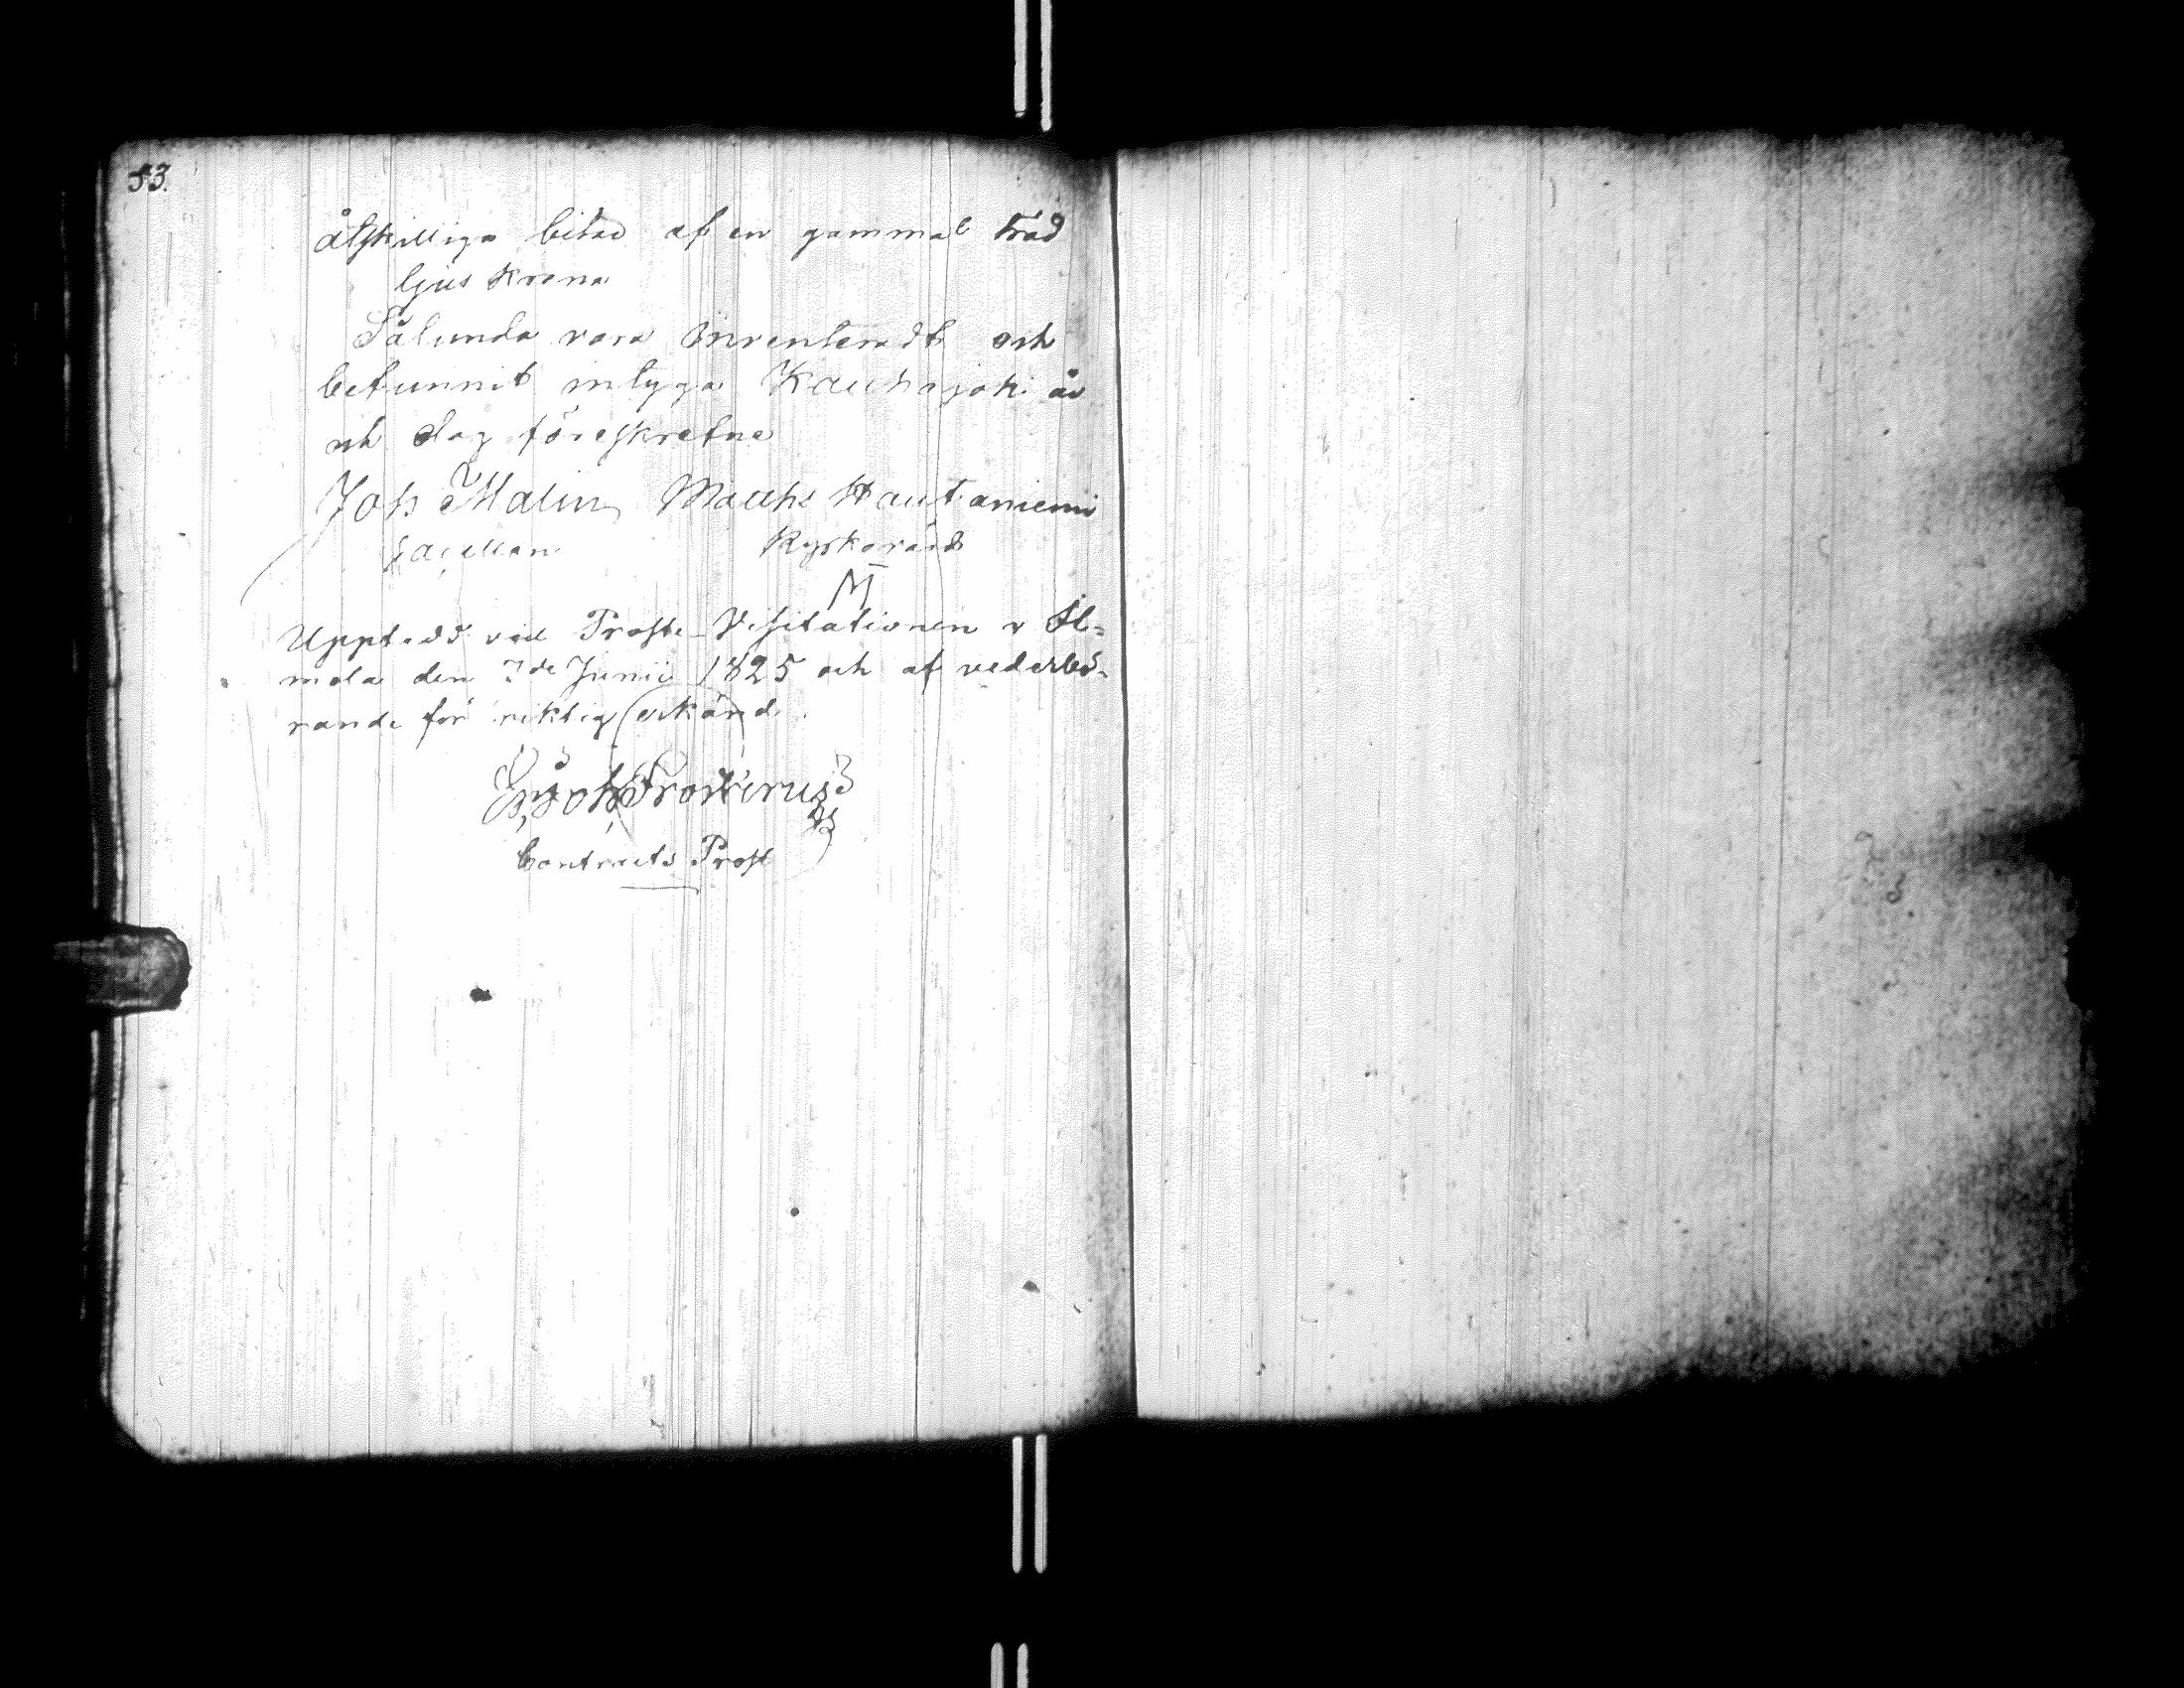 53.
åtskilliga bitar af en gammal träd
ljus Krona
Sålunda vara inventeradt och
befunnit intyga Kauhajoki år
och dag föreskrefne
Joh Malin Matths Hautaniemi
Capellan Kyrkovärd
M
Upptedd vid Prosti-Visitationen i Il-
mola den 7de Junii 1825 och af vederbö-
rande för riktig erkänd.
Joh Frosterus
Contracts Prost